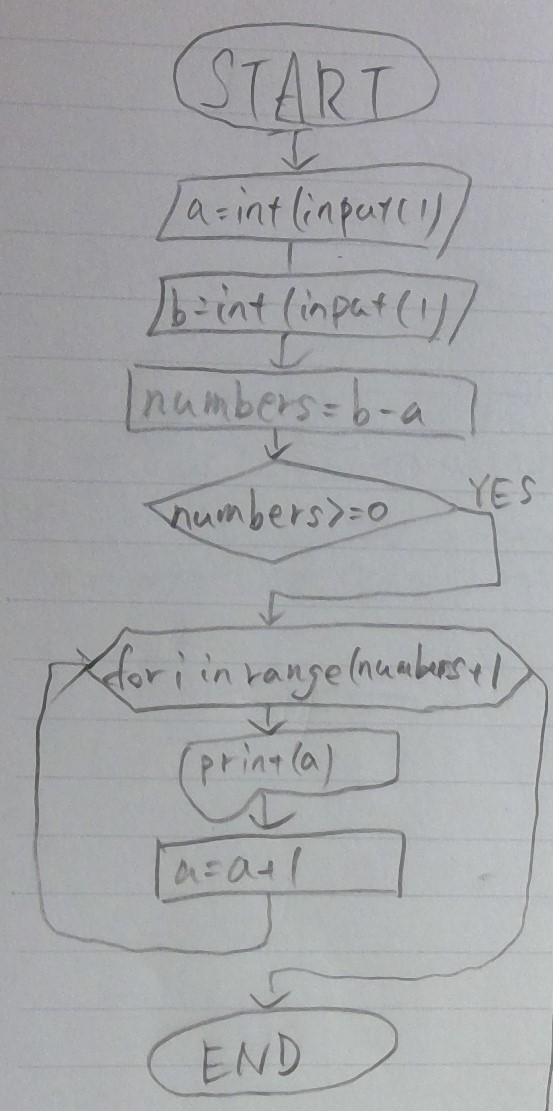 START
a=int(input(1)
b=int(input(1)
numbers=b-a
numbers>=0
YES
for i in range(numbers+1
print(a)
a=a+1
END